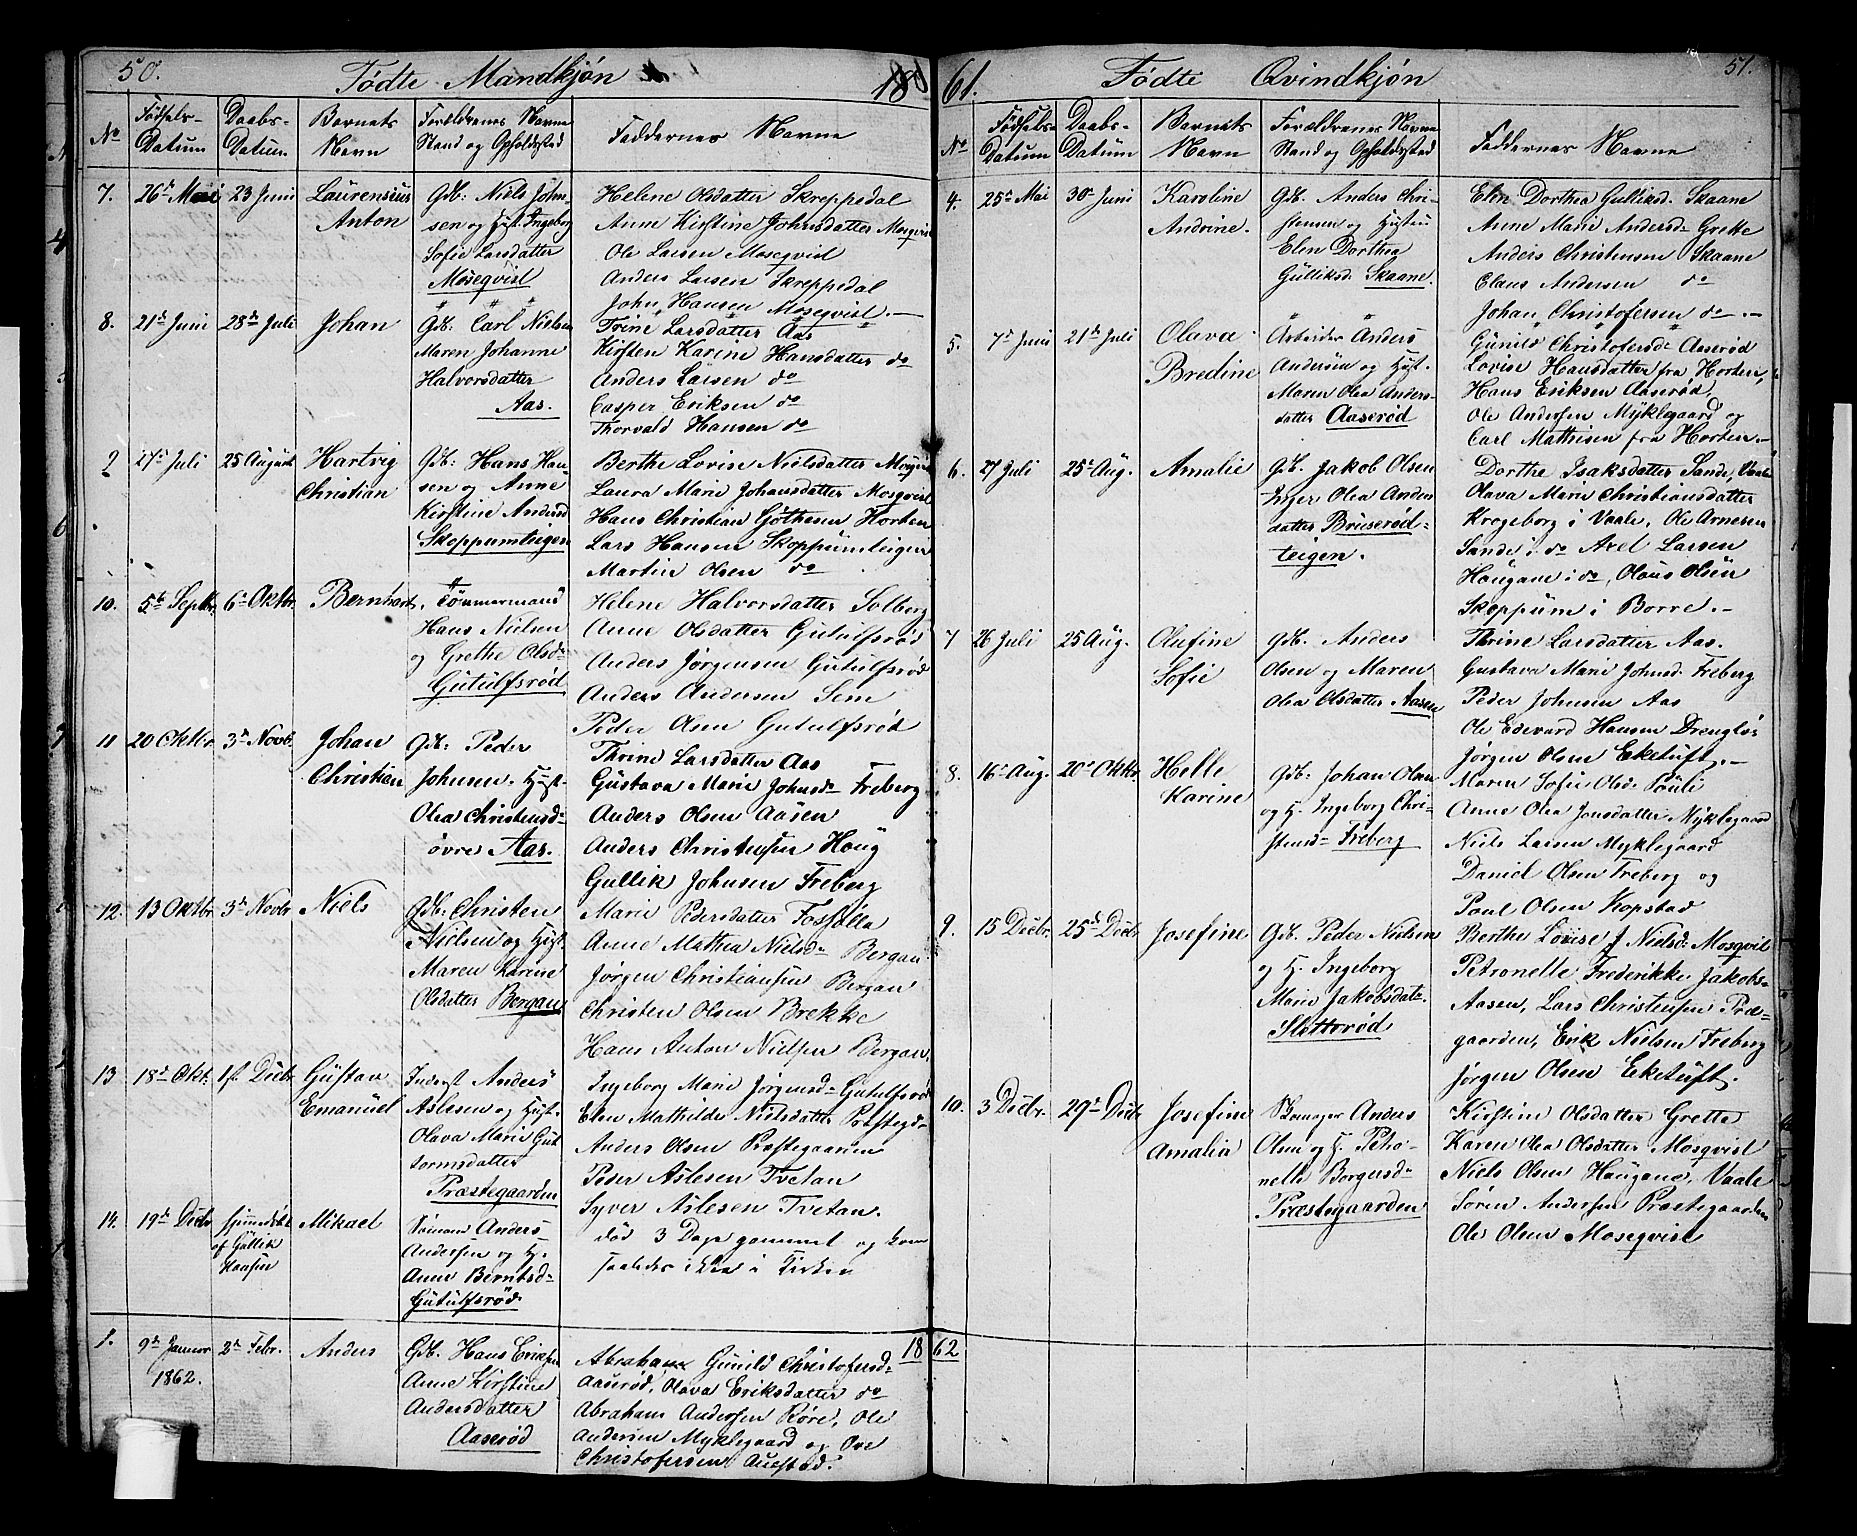 50.
Fødte Mandkjøn
18
No
Fødsels-
Datum
Daabs-
Datum
Barnets
Navn
Forældrenes Navne
Stand og Opholdssted
Faddernes Navne
7.
26de Mai
23 Juni
Laurensius
Anton
Gdb: Niels John-
sen og Hust. Ingeborg
Sofie Larsdatter
Moseqvist
Helene Olsdatter Skreppedal
Anne Kirstine Johnsdatter Mosqvist
Ole Larsen Moseqvist
Anders Larsen Skreppedal
John Hansen Moseqvist.
8.
21de Juni
28de Juli
Johan
Gdb: Carl Nielsen
Maren Johanne
Halvorsdatter
Aas.
Trine Larsdatter Aas
Kirsten Karine Hansdatter do
Anders Larsen do
Casper Eriksen do
Thorvald Hansen do
9
27de Juli
25 August
Hartvig
Christian
Gdb: Hans Han-
sen og Anne
Kirstine Andersd
Skoppumteigen
Berthe Lovise Nielsdatter
Laura Marie Johansdatter Mosqvist
Hans Christian Gøthesen Horten
Lars Hansen Skoppumteigen
Martin Olsen do
10.
5te Septbr.
6te Oktbr
Bernhart.
Tømmermand
Hans Nielsen
og Grethe Olsdr
Gutulfsrød
Helene Halvorsdatter Solberg
Anne Olsdatter Gutulfsrød
Anders Jørgensen Gutulfsrød
Anders Andersen Sem
Peder Olsen Gutulfsrød
11
20 Oktbr.
3de Novb.
Johan
Christian
Gdb: Peder
Johnsen. Hust.
Olea Christensd-
øvre Aas.
Thrine Larsdatter Aas
Gustava Marie Johnsd- Freberg
Anders Olsen Aasen
Anders Christensen Haug
Gullik Johnsen Freberg
12.
13 Oktbr.
3de Novbr
Niels
Gdb: Christen
Nielsen og Hust.
Maren Karine
Olsdatter Bergan
Marie Pedersdatter
Anne Mathea Nielsd- Bergan
Jørgen Christiansen Bergan
Christen Olsen Brekke
Hans Anton Nielsen Bergan.
13
18de Okt.
1ste Decbr
Gustav
Emanuel
Inderst Anders
Aslesen og Hust.
Olava Marie Gut
tormsdatter
Præstegaarden
Ingeborg Marie Jørgensd- Gutulfsrød
Elen Mathilde Nielsdatter Præstegd-
Anders Olsen Præstegaarden
Peder Aslesen Tvetan
Syver Aslesen Tvetan.
14.
19de Decbr
hjemmedøbt
af Gullik
Hansen
Mikael
Sømand Anders
Andersen og H.
Anne Berntsd-
Gutulfsrød.
død 3 Dage gammel og kom
saaledes ikke i Kirken
1.
9de Januar
1862.
2de Febr.
Anders
Gdb. Hans Eriksen
Anne Kirstine
Andersdatter
Aaserød
Abraham Gunild Christofersd-
Aaserød, Olava Eriksdatter do
Abraham Andersen Røre, Ole
Andersen Myklegaard og Ove
Christofersen Auestad.
18
61.
Fødte Qvindkjøn
51.
No
Fødsels-
Datum
Daabs-
Datum
Barnets
Navn
Forældrenes Navne
Stand og Opholdssted
Faddernes Navne
4.
25de Mai
30te Juni
Karoline
Andrine.
Gdb. Anders Chri-
stensen og Hustru
Elen Dorthea
Gulliksd. Skaane.
Elen Dorthea Gulliksd. Skaane
Anne Marie Andersd- Grette
Anders Christensen Skaane
Claus Andersen do
Johan Christofersen do
5.
7de Juni
21de Juli
Olava
Bredine
Arbeider Anders
Andersen og Hust.
Maren Olea Anders-
datter Aaserød
Gunild Christofersd- Aaserød
Lovise Hansdatter fra Horten,
Hans Eriksen Aaserød,
Ole Andersen Myklegaard og
Carl Mathisen fra Horten.
6.
27 Juli
25de Aug.
Amalie
Gdb. Jakob Olsen
Inger Olea Anders
datter Bruserød-
teigen.
Dorthe Isaksdatter Sande, Vaale
Olava Marie Christiansdatter
Krogeborg i Vaale, Ole Arnesen
Sande i do Axel Larsen
Haugane i do, Olaus Olsen
Skoppum i Borre.
7
26 Juli
25 Aug.
Olufine
Sofie
Gdb. Anders
Olsen og Maren
Olea Olsdatter Aasen
Thrine Larsdatter Aas.
Gustava Marie Johnsd. Freberg
Peder Johnsen Aas
Ole Edevard Hansen
Jørgen Olsen Eketuft.
8.
16de Aug.
20de Oktbr
Helle
Karine
Gdb: Johan Olsen
og H. Ingeborg Chri-
stensd- Freberg
Maren Sofie Olsd- Pauli
Anne Olea Jonsdatter Myklegaard
Niels Larsen Myklegaard
Daniel Olsen Freberg og
Poul Olsen Kopstad
9.
15 Decbr.
25de Decbr
Josefine
Gdb. Peder Nielsen
og H. Ingeborg
Marie Jakobsdatr.
Slottsrød
Berthe Lovise J Nielsd- Mosqvist
Petronelle Frederikke Jakobs-
Aasen, Lars Christensen Præ-
gaarden, Erik Nielsen Freberg
Jørgen Olsen Eketuft.
10.
3 Decbr.
29de Decbr
Josefine
Amalia
Anders
Olsen og H. Petro-
nelle Borgersd-
Præstegaarden
Kirstine Olsdatter Grette
Karen Olea Olsdatter Mosqvist
Niels Olsen Haugane, Vaale
Søren Andersen Præstegaarden
Ole Olsen Moseqvist
62